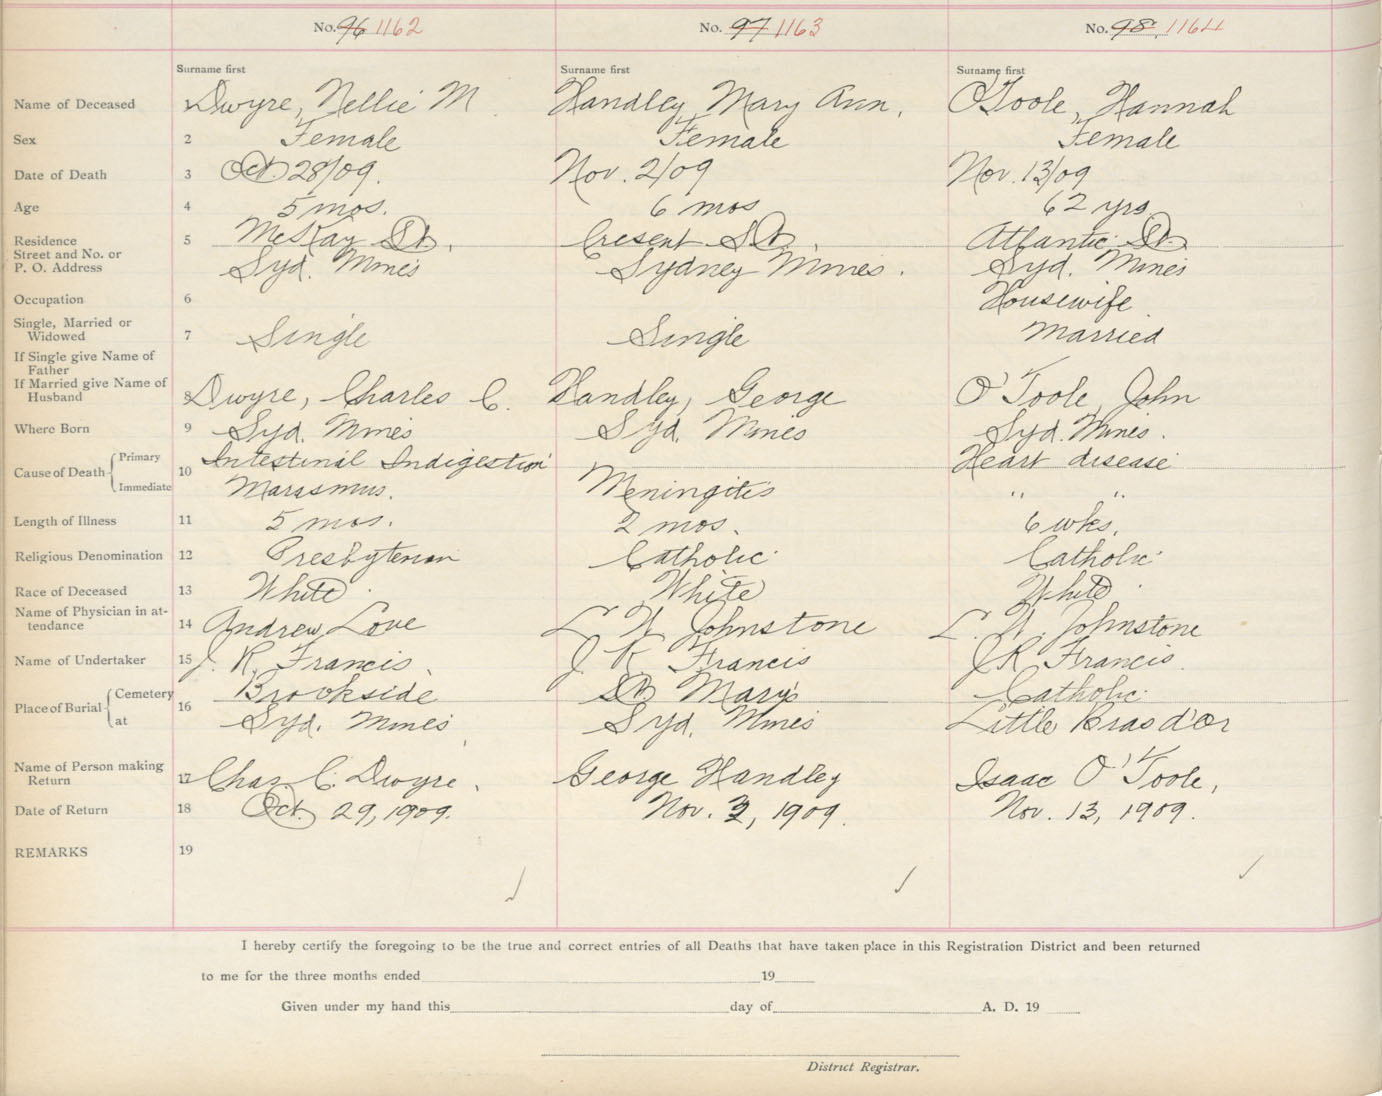 No. 96 1162 No. 97 1163 No. 98 1164
Surname first Surname first Surname first
Name of Deceased 1 Dwyre, Nellie M Handley, Mary Ann, O'Toole, Hannah
Sex 2 Female Female Female
Date of Death 3 Oct. 28/09. Nov. 2/09 Nov. 13/09
Age 4 5 mos. 6 mos 62 yrs
Residence 5 McKay St., Cresent St., Atlantic St.
Street and No. or
P. O. Address Syd. Mines Sydney Mines. Syd. Mines
Occupation 6 Housewife
Single, Married or
Widowed 7 Single Single Married
If Single give Name of
Father
If Married give Name of
Husband 8 Dwyre, Charles C. Handley, George O'Toole, John
Where Born 9 Syd. Mines Syd. Mines Syd. Mines.
Cause of Death 10 Primary Intestinal Indigestion Heart disease
Immediate Marasmus. Meningitis " "
Length of Illness 11 5 mos. 2 mos. 6 wks.
Religious Denomination 12 Presbyterian Catholic Catholic
Race of Deceased 13 White White White
Name of Physician in at-
tendance 14 Andrew Love L. W. Johnstone L. W. Johnstone
Name of Undertaker 15 J. R. Francis. J R Francis J R Francis.
Place of Burial 16 Cemetery Brookside St. Mary's Catholic
at Syd. Mines Syd. Mines Little Bras d'Or
Name of Person making
Return 17 Chas. C. Dwyre. George Handley Isaac O'Toole,
Date of Return 18 Oct. 29, 1909. Nov. 3, 1909. Nov. 13, 1909.
REMARKS 19
I hereby certify the foregoing to be the true and correct entries of all Deaths that have taken place in this Registration District and been returned
to me for the three months ended 19
Given under my hand this day of A. D. 19
District Registrar.